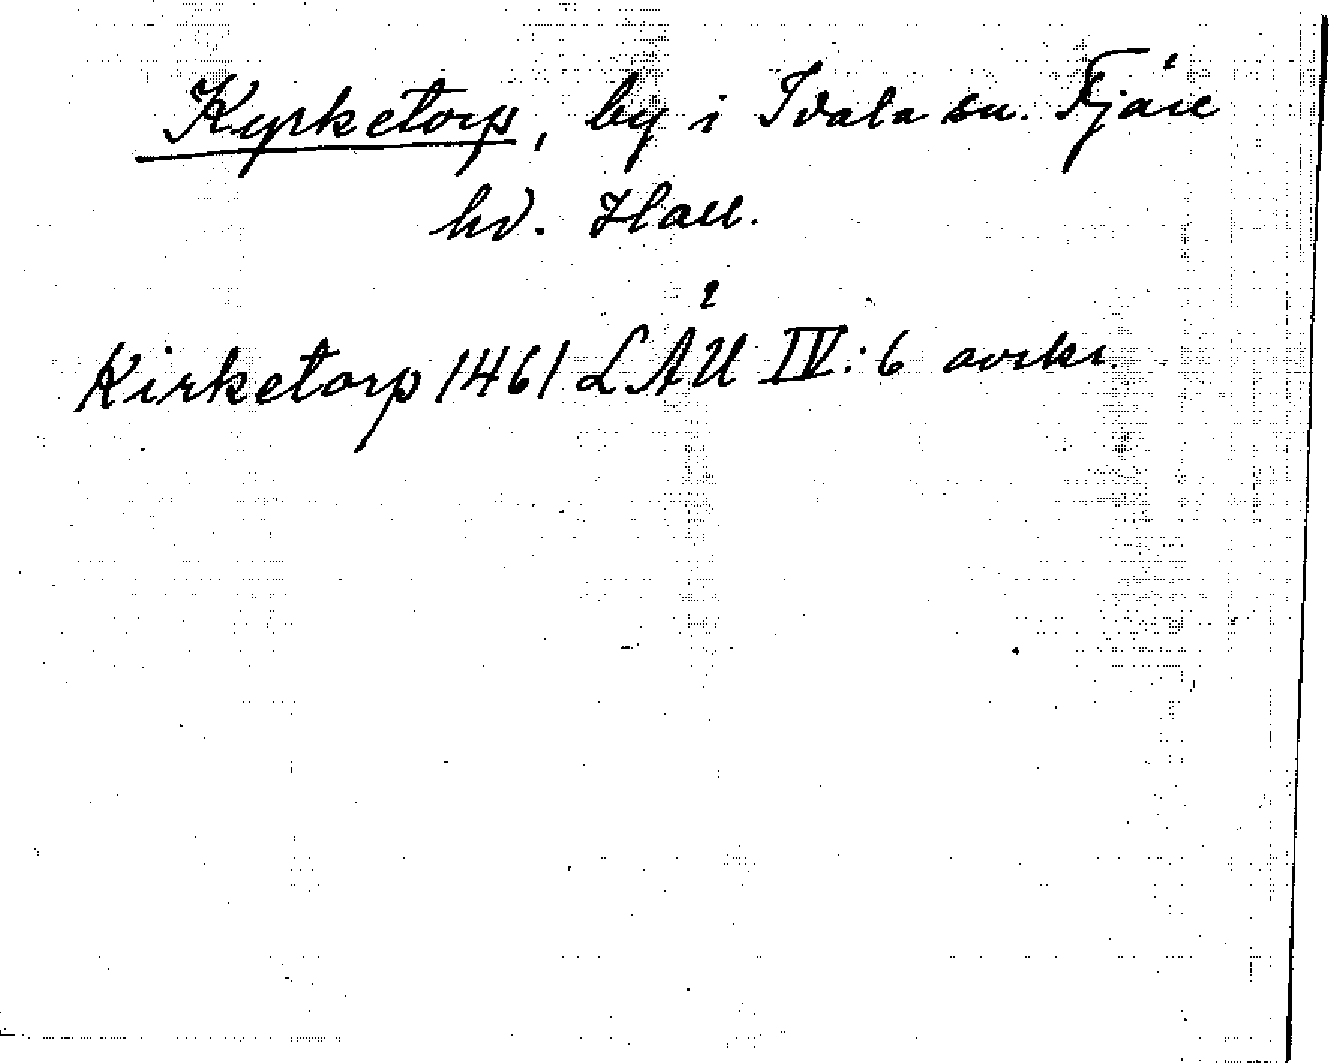 Kyrketorp, by i Idala sn. Fjäre
hd. Hall.
Kirketorp 1461 LÄU IV:6 avskr.